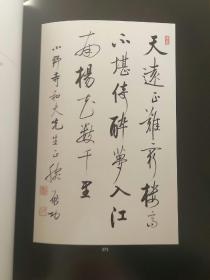 天遠正難窮樓高
不堪倚醉夢入江
南楊花數千里
小野寺和夫先生正腕 啟功